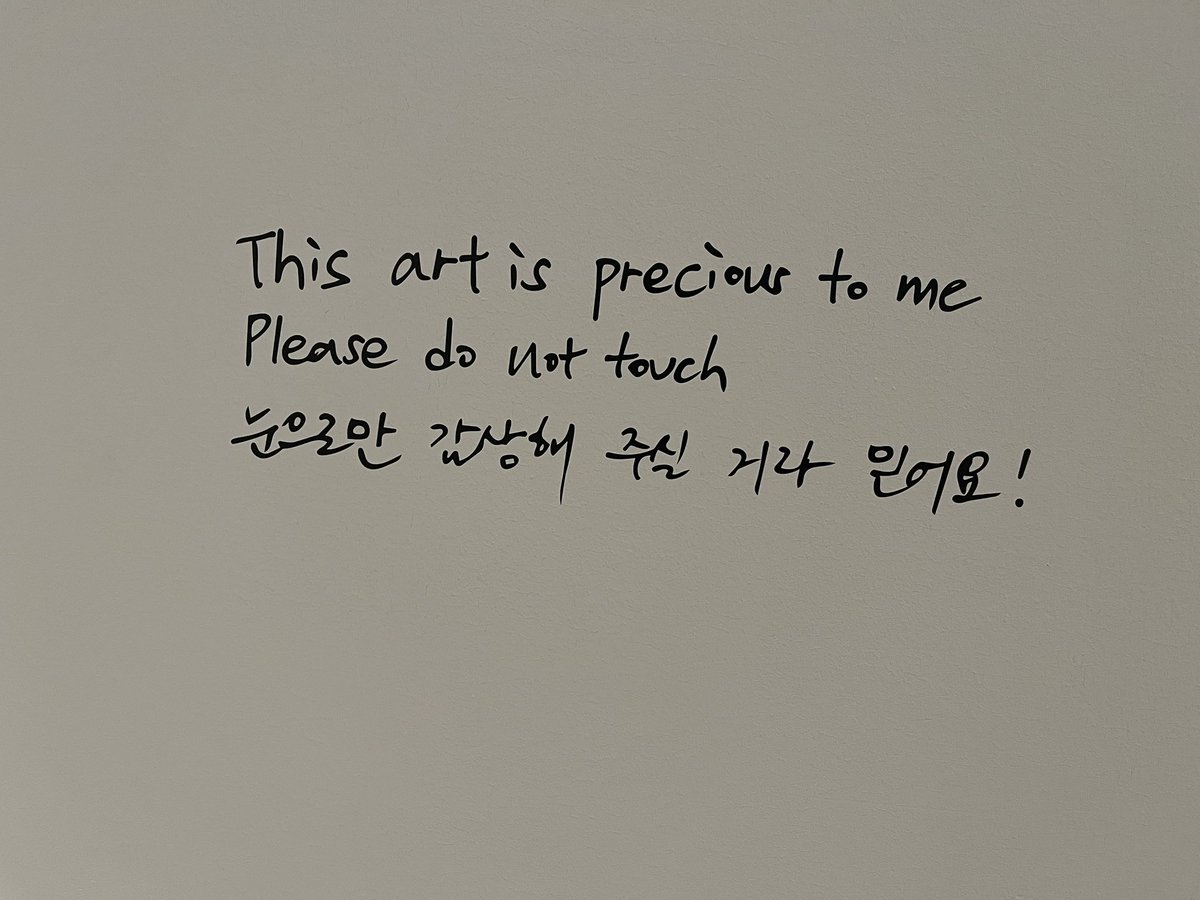 This art is precious to me
Please do not touch
눈으로만 감상해 주실 거라 믿어요!